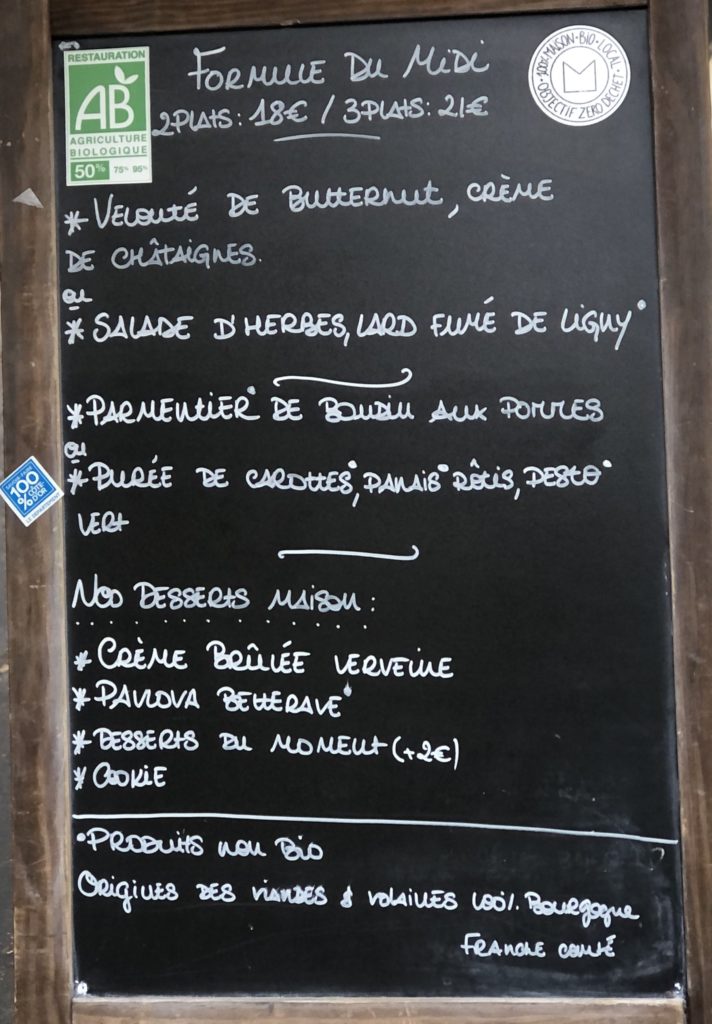 RESTAURATION
AB
AGRICULTURE
BIOLOGIQUE
50% 75% 95%
FORMULE DU MIDI
2 PLATS: 18€ / 3 PLATS: 21€
100% MAISON • BIO • LOCAL
OBJECTIF ZERO DECHET
* VELOUTÉ DE BUTTERNUT, CRÈME
DE CHÂTAIGNES.
OU
* SALADE D'HERBES, LARD FUMÉ DE LIGNY°
* PARMENTIER° DE BOUDIN AUX POMMES
OU
* PURÉE DE CAROTTES°, PANAIS° RÔTIS, PESTO°
VERT
100%
CÔTE
D'OR
NOS DESSERTS MAISON :
* CRÈME BRÛLÉE VERVEINE
* PAVLOVA BETTERAVE°
* DESSERTS DU MOMENT (+2€)
* COOKIE
° PRODUITS NON BIO
ORIGINES DES VIANDES & VOLAILLES 100% BOURGOGNE
FRANCHE COMTÉ